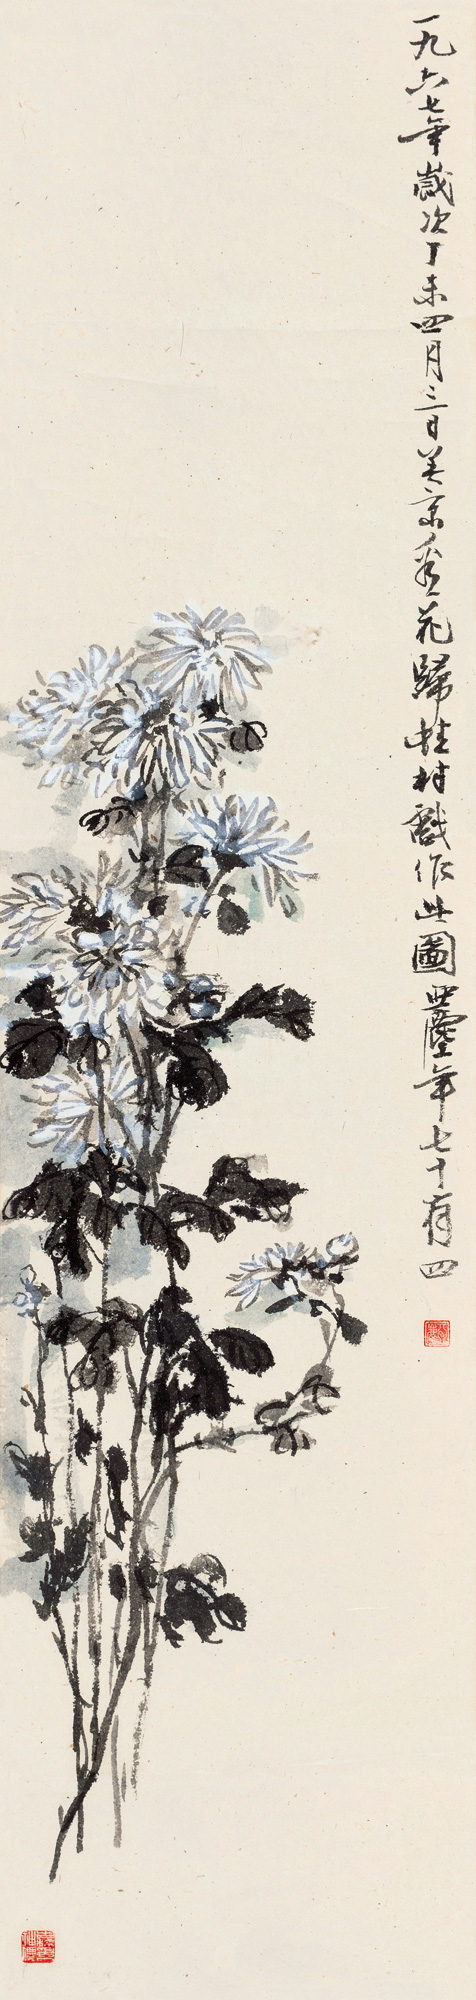 一九六七年歲次丁未四月三日美京看花歸村戲作此圖亞塵年七十有四